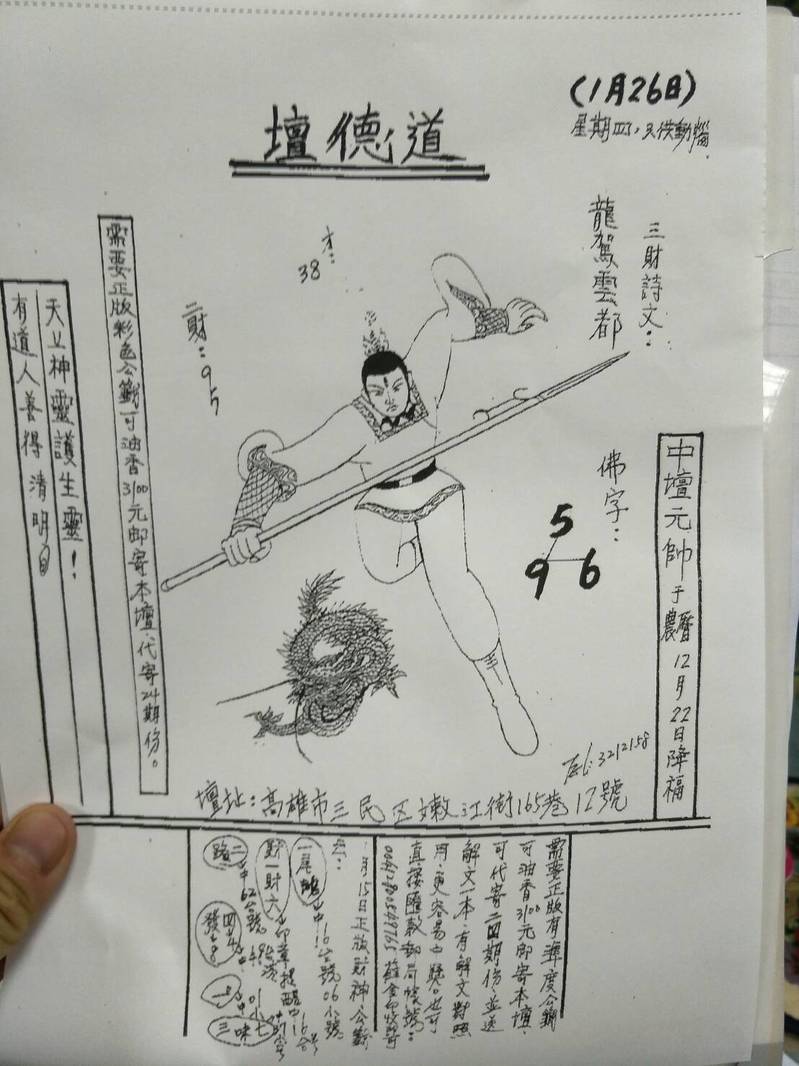 (1月26日)
星期四,
道德壇
三財詩文：
龍駕雲都
才：
38
二財：95
佛字：
5
9 6
中壇元帥于農曆12月22日降福
需要正版彩色公籤可油香3100元郵寄本壇、代寄24期份。
天上神靈護生靈！
有道人善得清明日
TEL:3212158
壇址：高雄市三民区嫩江街165巷12號
需要正版有準度公籤
可油香3100元郵寄本壇，
可代寄二四期份、並送
解文一本、有解文對照
用、更容易中獎。也可
直接匯款郵局帳號：
1月15日正版財神公籤
一尾
中16台號06小號
財一財六
二路
中62台號
三味